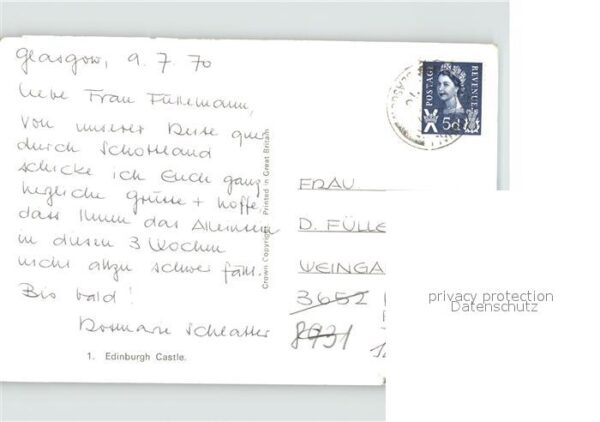 Glasgow, 9.7.70
Liebe Frau Füllemann,
Von unserer Reise quer
durch Schottland
schicke ich Euch ganz
herzliche Grüsse + hoffe,
dass Ihnen das Alleinsein
in diesen 3 Wochen
nicht allzu schwer fällt.
Bis bald!
Rosmarie Schlatter
1. Edinburgh Castle.
Crown Copyright. Printed in Great Britain
POSTAGE
REVENUE
5d
FRAU
D. FÜLLE
WEINGA
3652
8931
privacy protection
Datenschutz